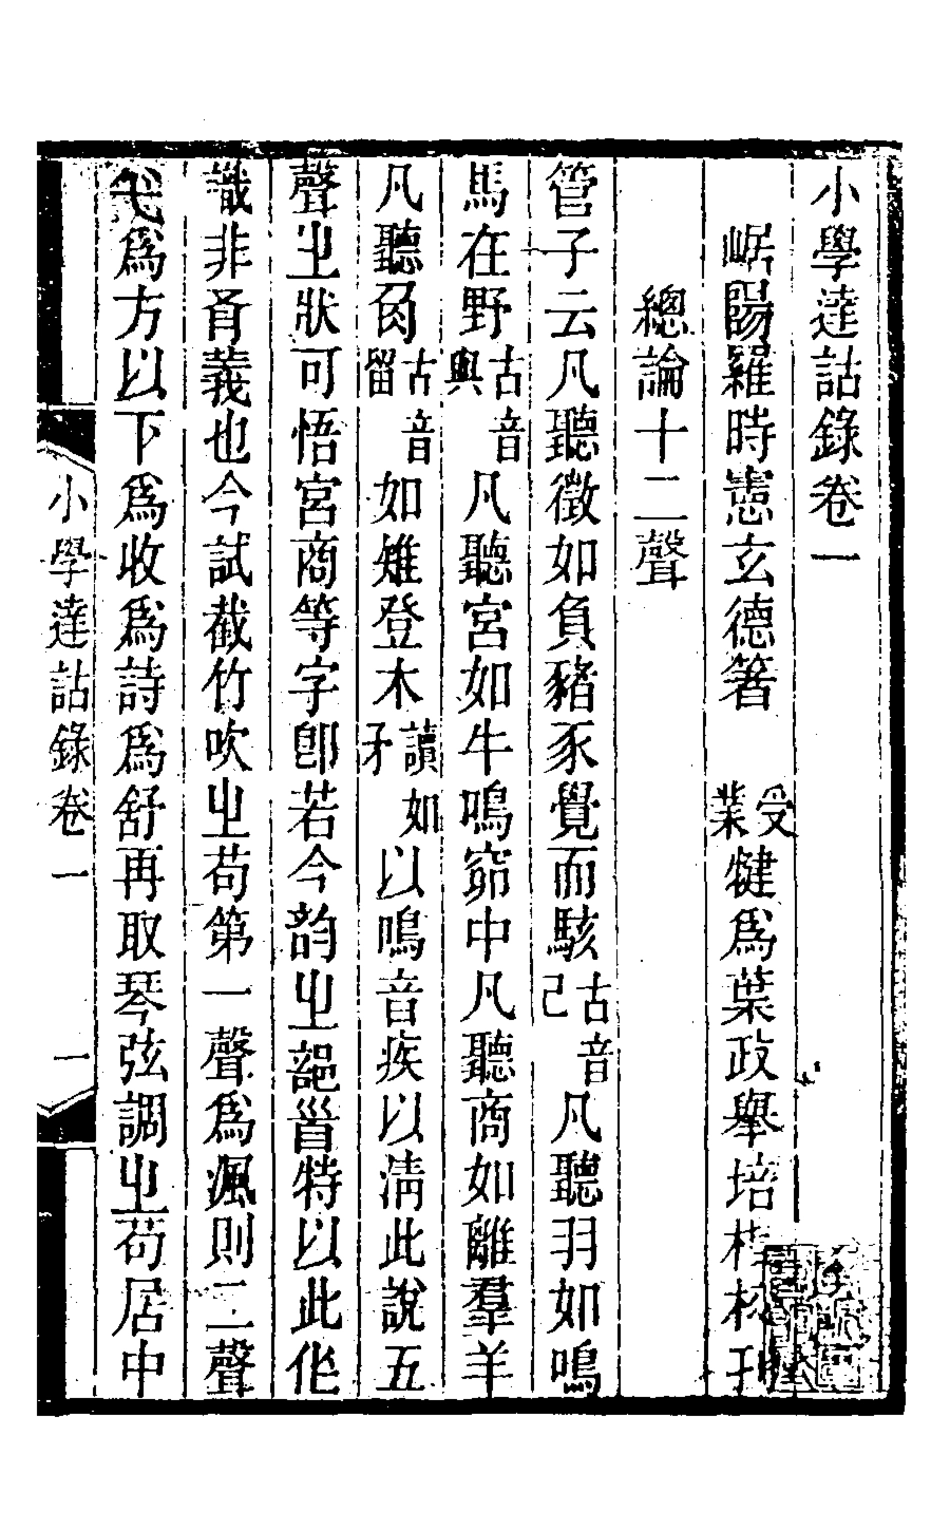 小學達詁錄卷一
崌陽羅時憲玄德箸 受業犍爲葉政舉培桂林刊
總論十二聲
管子云凡聽徵如負豬豕覺而駭古音己凡聽羽如鳴
馬在野古音與凡聽宮如牛鳴窌中凡聽商如離羣羊
凡聽𧢲古音留如雉登木讀如矛以鳴音疾以淸此說五
聲㞢狀可悟宮商等字卽若今韵㞢䛐𥄳特以此作
識非有義也今試截竹吹㞢苟第一聲爲渢則二聲
弋爲方以下爲收爲詩爲舒再取琴弦調㞢苟居中
小學達詁錄卷一 一